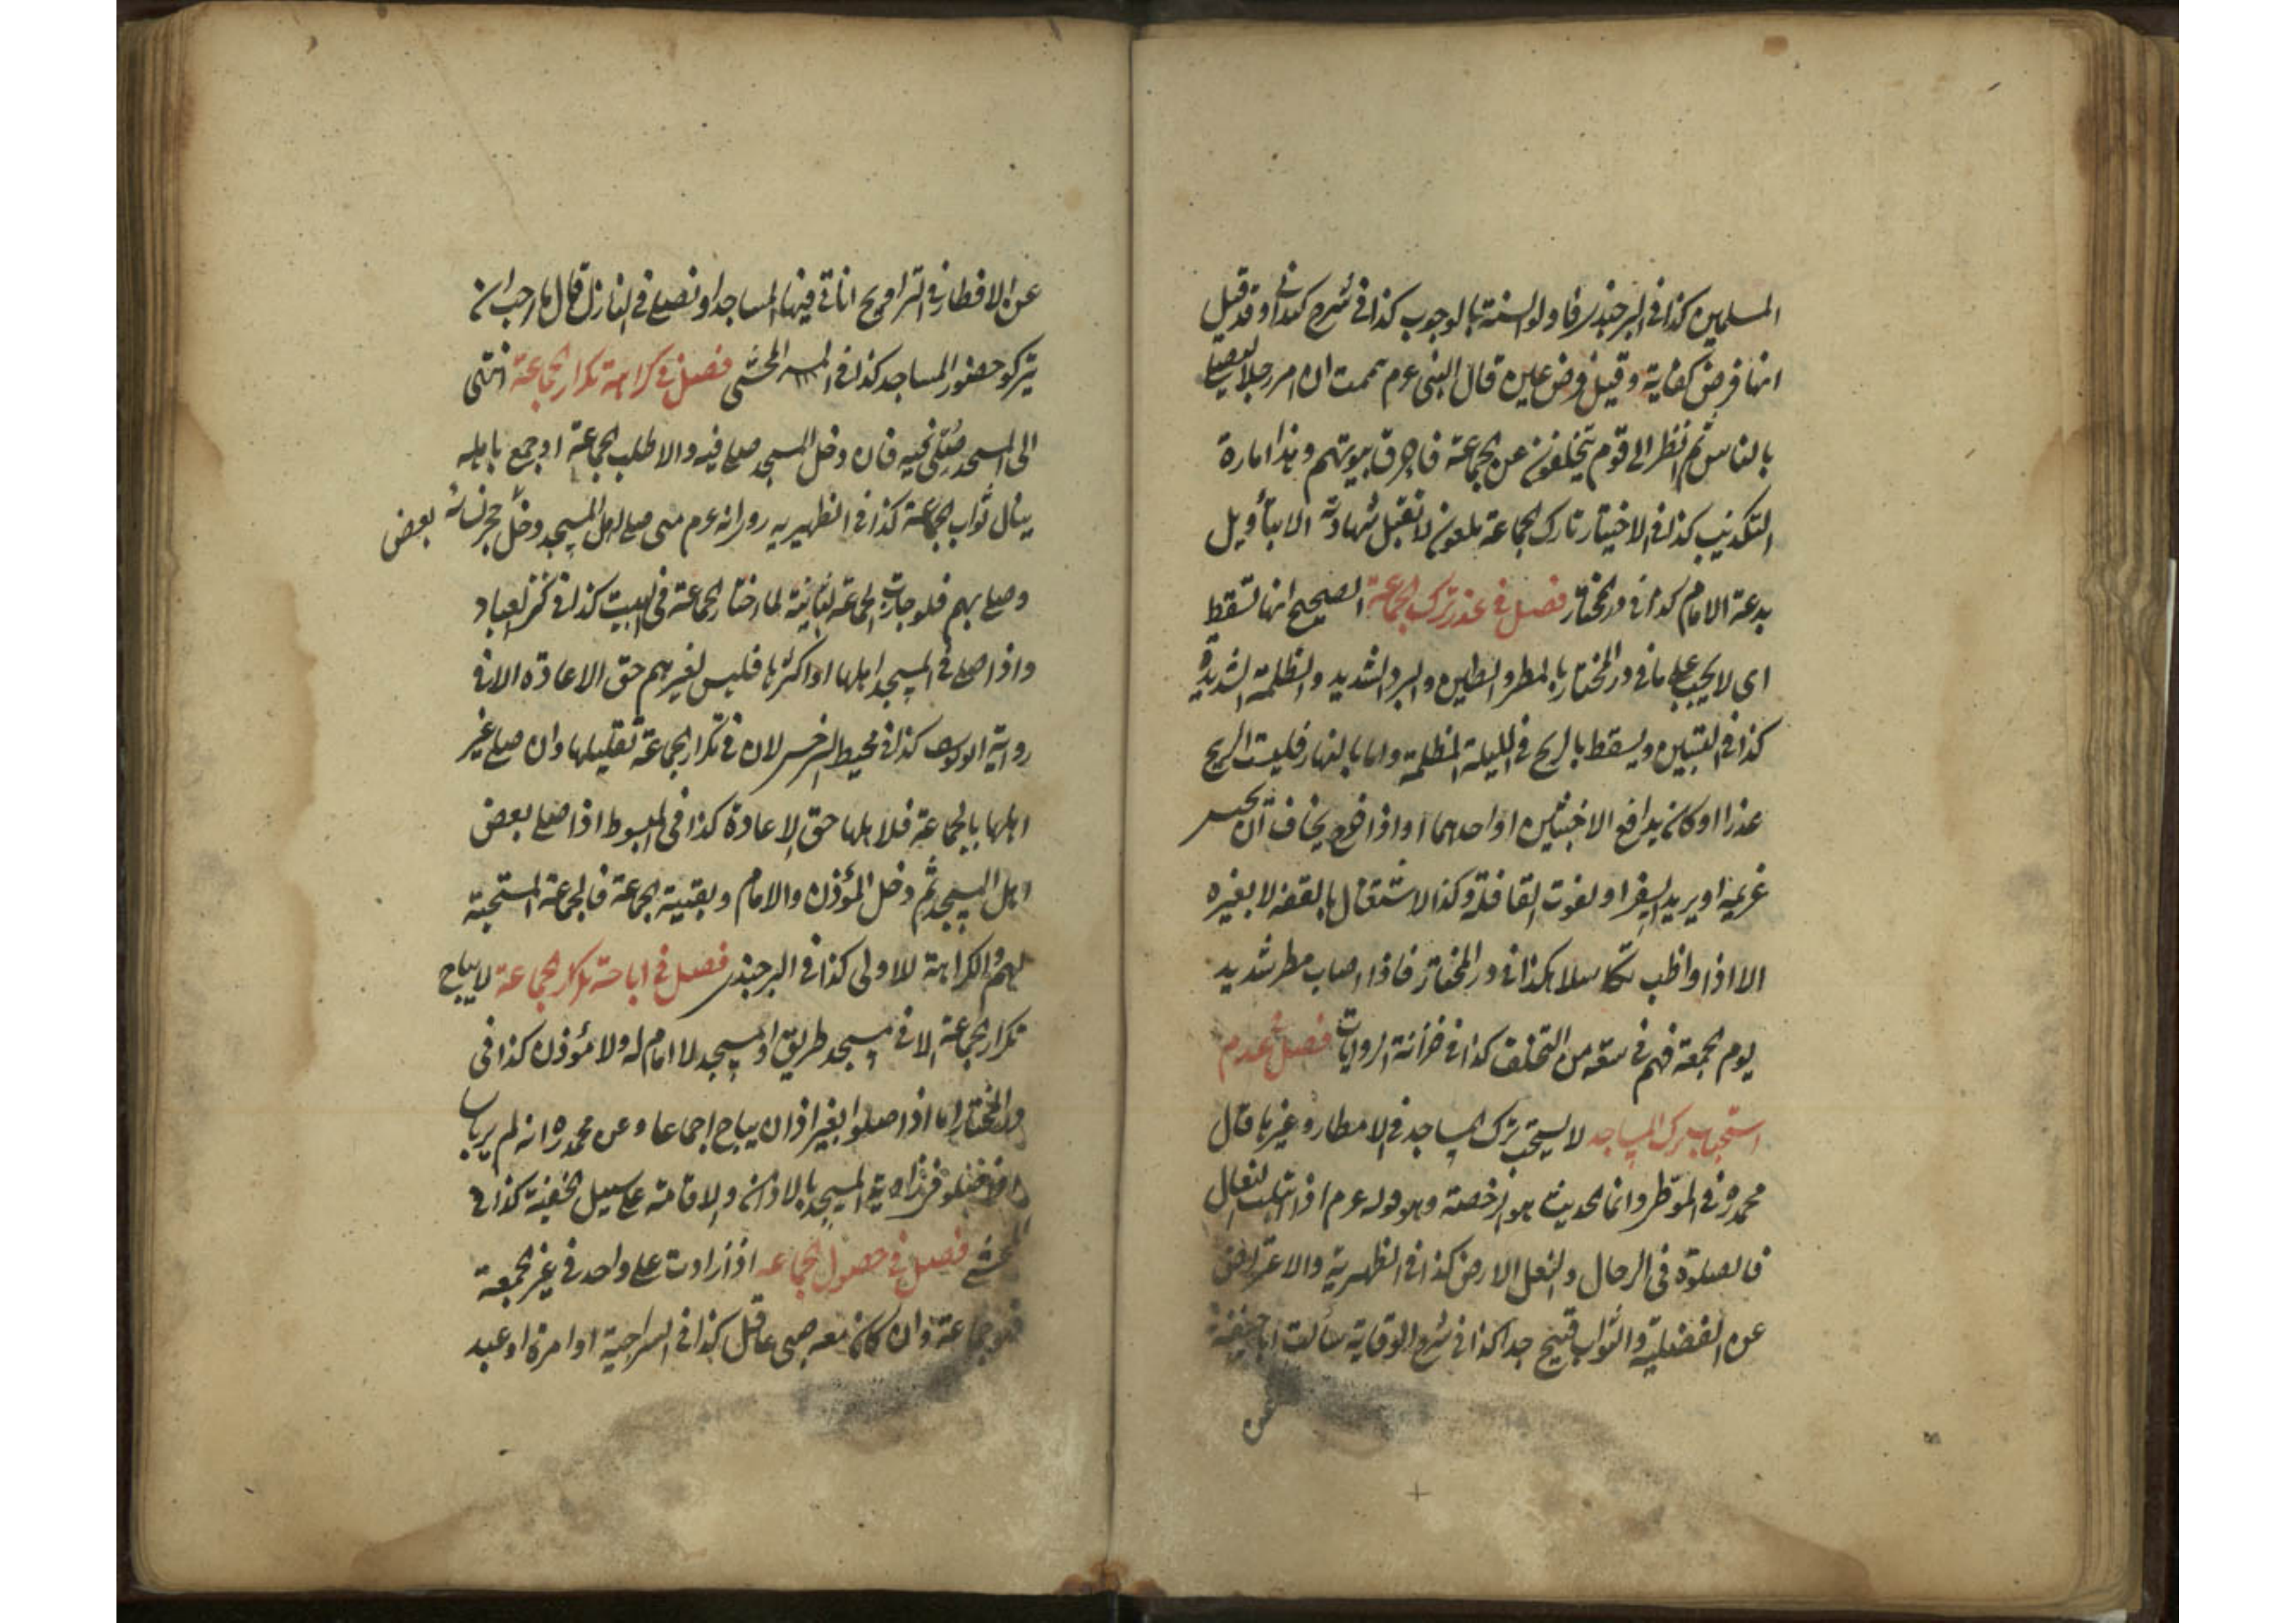 المسلمين كذا فى البرجندى فا ولو السنة بالوجوب كذا فى شرح كيدانى وقد قيل
انها فرض كفاية وقيل فرض عين قال النبى عم هممت ان امر رجلا يصلى
بالناس ثم انظر الى قوم يتخلفون عن الجماعة فاحرق بيوتهم وهذا امارة
التكذيب كذا فى الاختيار تارك الجماعة ملعون لا تقبل شهادته الا بتأويل
بدعة الامام كذا فى در المختار فصل فى عذر ترك الجماعة الصحيح انها تسقط
اى لا يجب على ما فى در المختار بالمطر والطين والبرد الشديد والظلمة الشديدة
كذا فى التبيين ويسقط بالريح فى الليلة المظلمة واما بالنهار فليست الريح
عذرا او كان يدافع الاخبثين او احدهما او اذا خرج يخاف ان يحبس
غريمه او يريد السفر او لفوت القافلة وكذا لاشتغال بالفقه لا بغيره
الا اذا واظب تكاسلا هكذا فى در المختار فاذا اصاب مطر شديد
يوم الجمعة فهم فى سعة من التخلف كذا فى خزانة الروايات فصل عدم
استحباب ترك المساجد لا يستحب ترك المساجد فى الامطار وغيرها قال
محمد ره فى الموطر وانما الحديث هو الرخصة وهو قوله عم اذا ابتلت النعال
فالصلوة فى الرحال والنعل الارض كذا فى الظهيرية والاعتراض
عن الفضيلة والثواب قبيح جدا كذا فى شرح الوقاية سألت ابا حنيفة
عن
عن الافطار فى التراويح اناتى فيها المساجد او نصلى فى المنازل قال ما احب ان
يتركو حضور المساجد كذا فى المحشى فصل فى كراهة تكرار الجماعة انتهى
الى المسجد صلى فيه فان دخل المسجد صلى فيه والا طلب الجماعة او جمع باهله
ينال ثواب الجماعة كذا فى الظهيريه روى انه عم متى صلى اهل المسجد دخل حجر نسائه بعض
وصلى بهم فلو جازت الجماعة الثانية لما اختار الجماعة فى البيت كذا فى كنز العباد
واذا صلى فى المسجد اهلها او اكثرها فليس لغيرهم حق الاعادة الا فى
رواية ابو يوسف كذا فى محيط السرخسى لان فى تكرار الجماعة تقليلها وان صلى غير
اهلها بالجماعة فلاهلها حق الاعادة كذا فى المبسوط اذا صلى بعض
اهل المسجد ثم دخل المؤذن والامام وبقية الجماعة فالجماعة المستحبة
لهم والكراهة للاولى كذا فى البرجندى فصل فى اباحة تكرار الجماعة لا يباح
تكرار الجماعة الا فى مسجد طريق او مسجد لا امام له ولا مؤذن كذا فى
در المختار اما اذا صلوا بغير اذان يباح اجماعا وعن محمد ره انه لم ير باسا
اذا صلو فى زاوية المسجد بالاذان والاقامة على سبيل الخفية كذا فى
المحشى فصل فى حصول الجماعه اذا زادت على واحد فى غير الجمعة
فهو جماعة وان كان معه صبى عاقل كذا فى السراجية او امرة او عبد